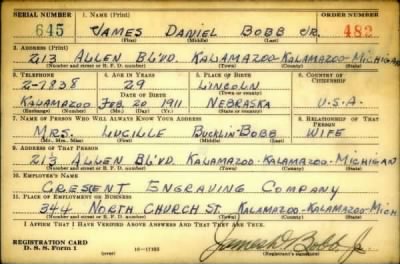 SERIAL NUMBER 1. NAME (Print) ORDER NUMBER
645 JAMES DANIEL BOBB JR. 482
(First) (Middle) (Last)
2. ADDRESS (Print)
213 ALLEN BL'VD. KALAMAZOO-KALAMAZOO-MICHIGAN
(Number and street or R. F. D. number) (Town) (County) (State)
3. TELEPHONE 4. AGE IN YEARS 5. PLACE OF BIRTH 6. COUNTRY OF CITIZENSHIP
2-7838 29 LINCOLN
KALAMAZOO FEB. 20 1911 NEBRASKA U.S.A.
7. NAME OF PERSON WHO WILL ALWAYS KNOW YOUR ADDRESS 8. RELATIONSHIP OF THAT PERSON
MRS. LUCILLE BUCKLIN-BOBB WIFE
(Mr., Mrs., Miss) (First) (Middle) (Last)
9. ADDRESS OF THAT PERSON
213 ALLEN BL'VD. KALAMAZOO-KALAMAZOO-MICHIGAN
(Number and street or R. F. D. number) (Town) (County) (State)
10. EMPLOYER'S NAME
CRESENT ENGRAVING COMPANY
11. PLACE OF EMPLOYMENT OR BUSINESS
344 NORTH CHURCH ST. KALAMAZOO-KALAMAZOO-MICH
(Number and street or R. F. D. number) (Town) (County) (State)
I AFFIRM THAT I HAVE VERIFIED ABOVE ANSWERS AND THAT THEY ARE TRUE.
REGISTRATION CARD
D. S. S. Form 1 (over) 16-17105 James D Bobb Jr.
(Registrant's signature)